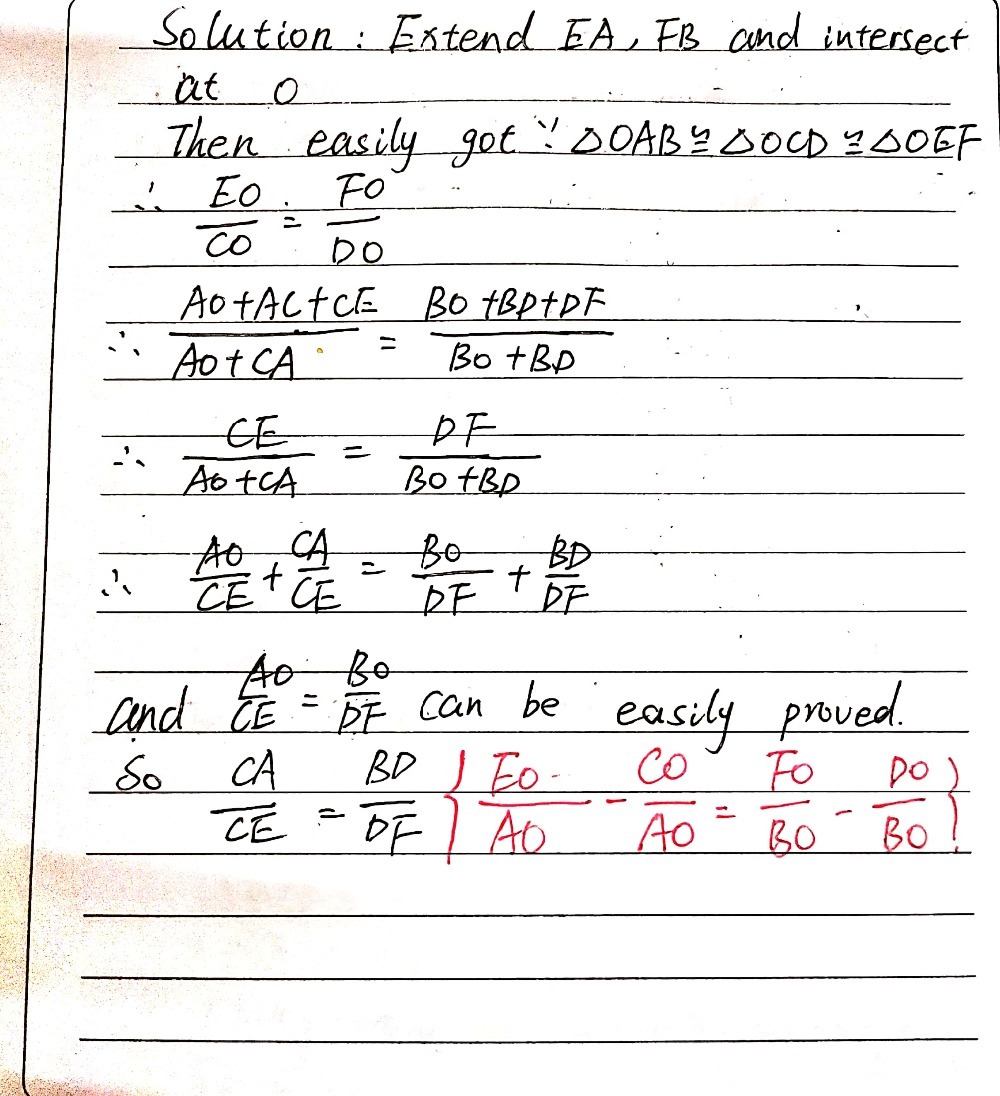 Solution : Extend EA, FB and intersect
at O
Then easily got ∵ △OAB ≌ △OCD ≌ △OEF
∴ EO/CO = FO/DO
∴ AO+AC+CE/AO+CA = BO+BD+DF/BO+BD
∴ CE/AO+CA = DF/BO+BD
∴ AO/CE + CA/CE = BO/DF + BD/DF
and AO/CE = BO/DF can be easily proved.
So CA/CE = BD/DF { EO/AO - CO/AO = FO/BO - DO/BO }